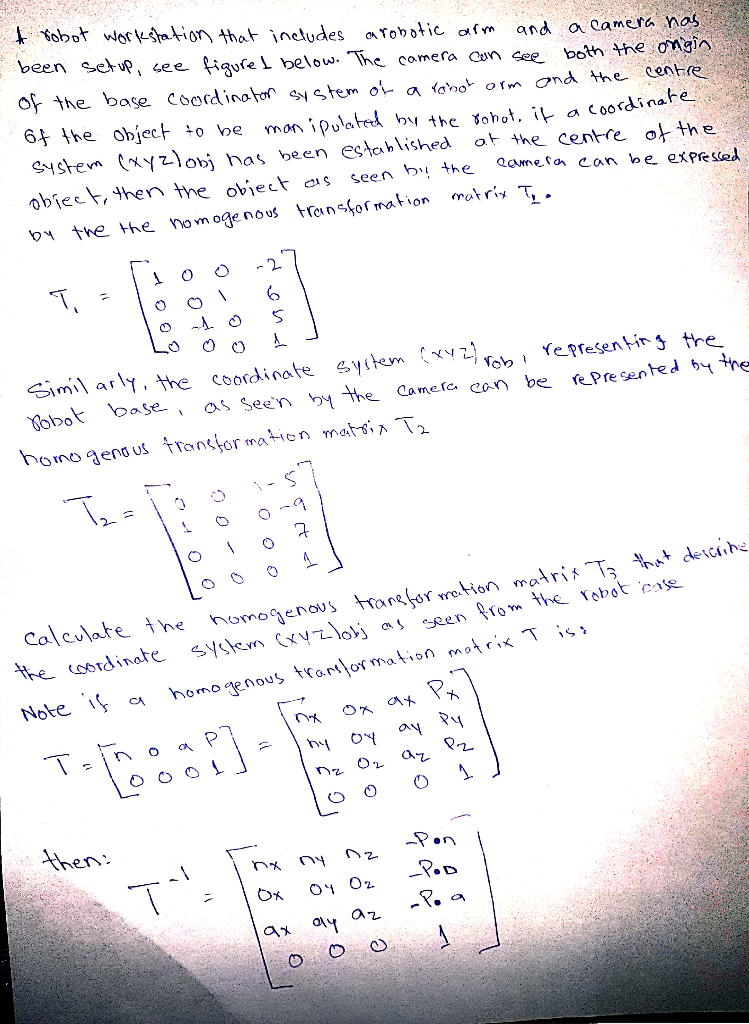 A robot workstation that includes a robotic arm and a camera has
been setup, see figure 1 below. The camera can see both the origin
of the base coordinator system of a robot arm and the centre
of the object to be manipulated by the robot. if a coordinate
system (xyz)obj has been established at the centre of the
object, then the object as seen by the camera can be expressed
by the the homogenous transformation matrix T1.
T1 = [ 1 0 0 -2
0 0 1 6
0 -1 0 5
0 0 0 1 ]
Similarly, the coordinate system (xyz)rob, representing the
robot base, as seen by the camera can be represented by the
homogenous transformation matrix T2
T2 = [ 0 0 1 -5
1 0 0 -9
0 1 0 7
0 0 0 1 ]
Calculate the homogenous transformation matrix T3 that describe
the coordinate system (xyz)obj as seen from the robot case
Note if a homogenous transformation matrix T is:
T = [ n o a P
0 0 0 1 ] = [ nx ox ax Px
ny oy ay Py
nz oz az Pz
0 0 0 1 ]
then:
T-1 = [ nx ny nz -P.n
ox oy oz -P.o
ax ay az -P.a
0 0 0 1 ]